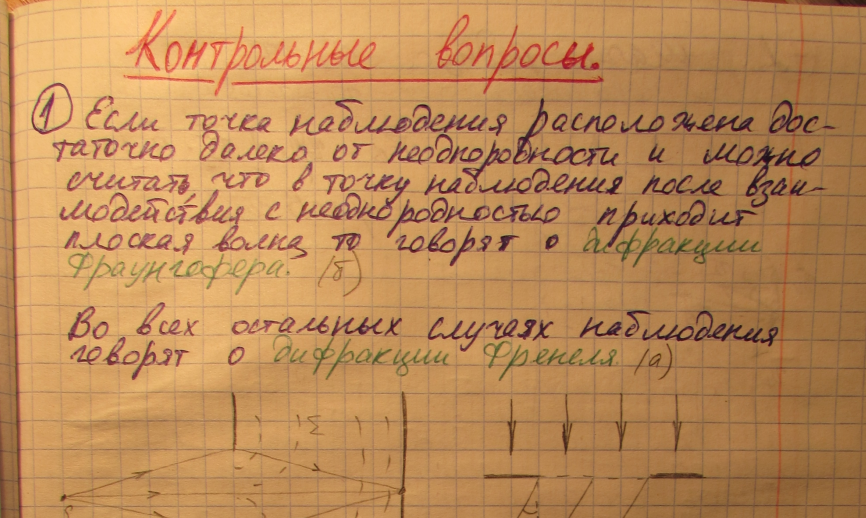 Контрольные вопросы.
1 Если точка наблюдения расположена дос-
таточно далеко от неоднородности и можно
считать, что в точку наблюдения после взаи-
модействия с неоднородностью приходит
плоская волна, то говорят о дифракции
Фраунгофера. (б)
Во всех остальных случаях наблюдения
говорят о дифракции Френеля (а)
Σ
S